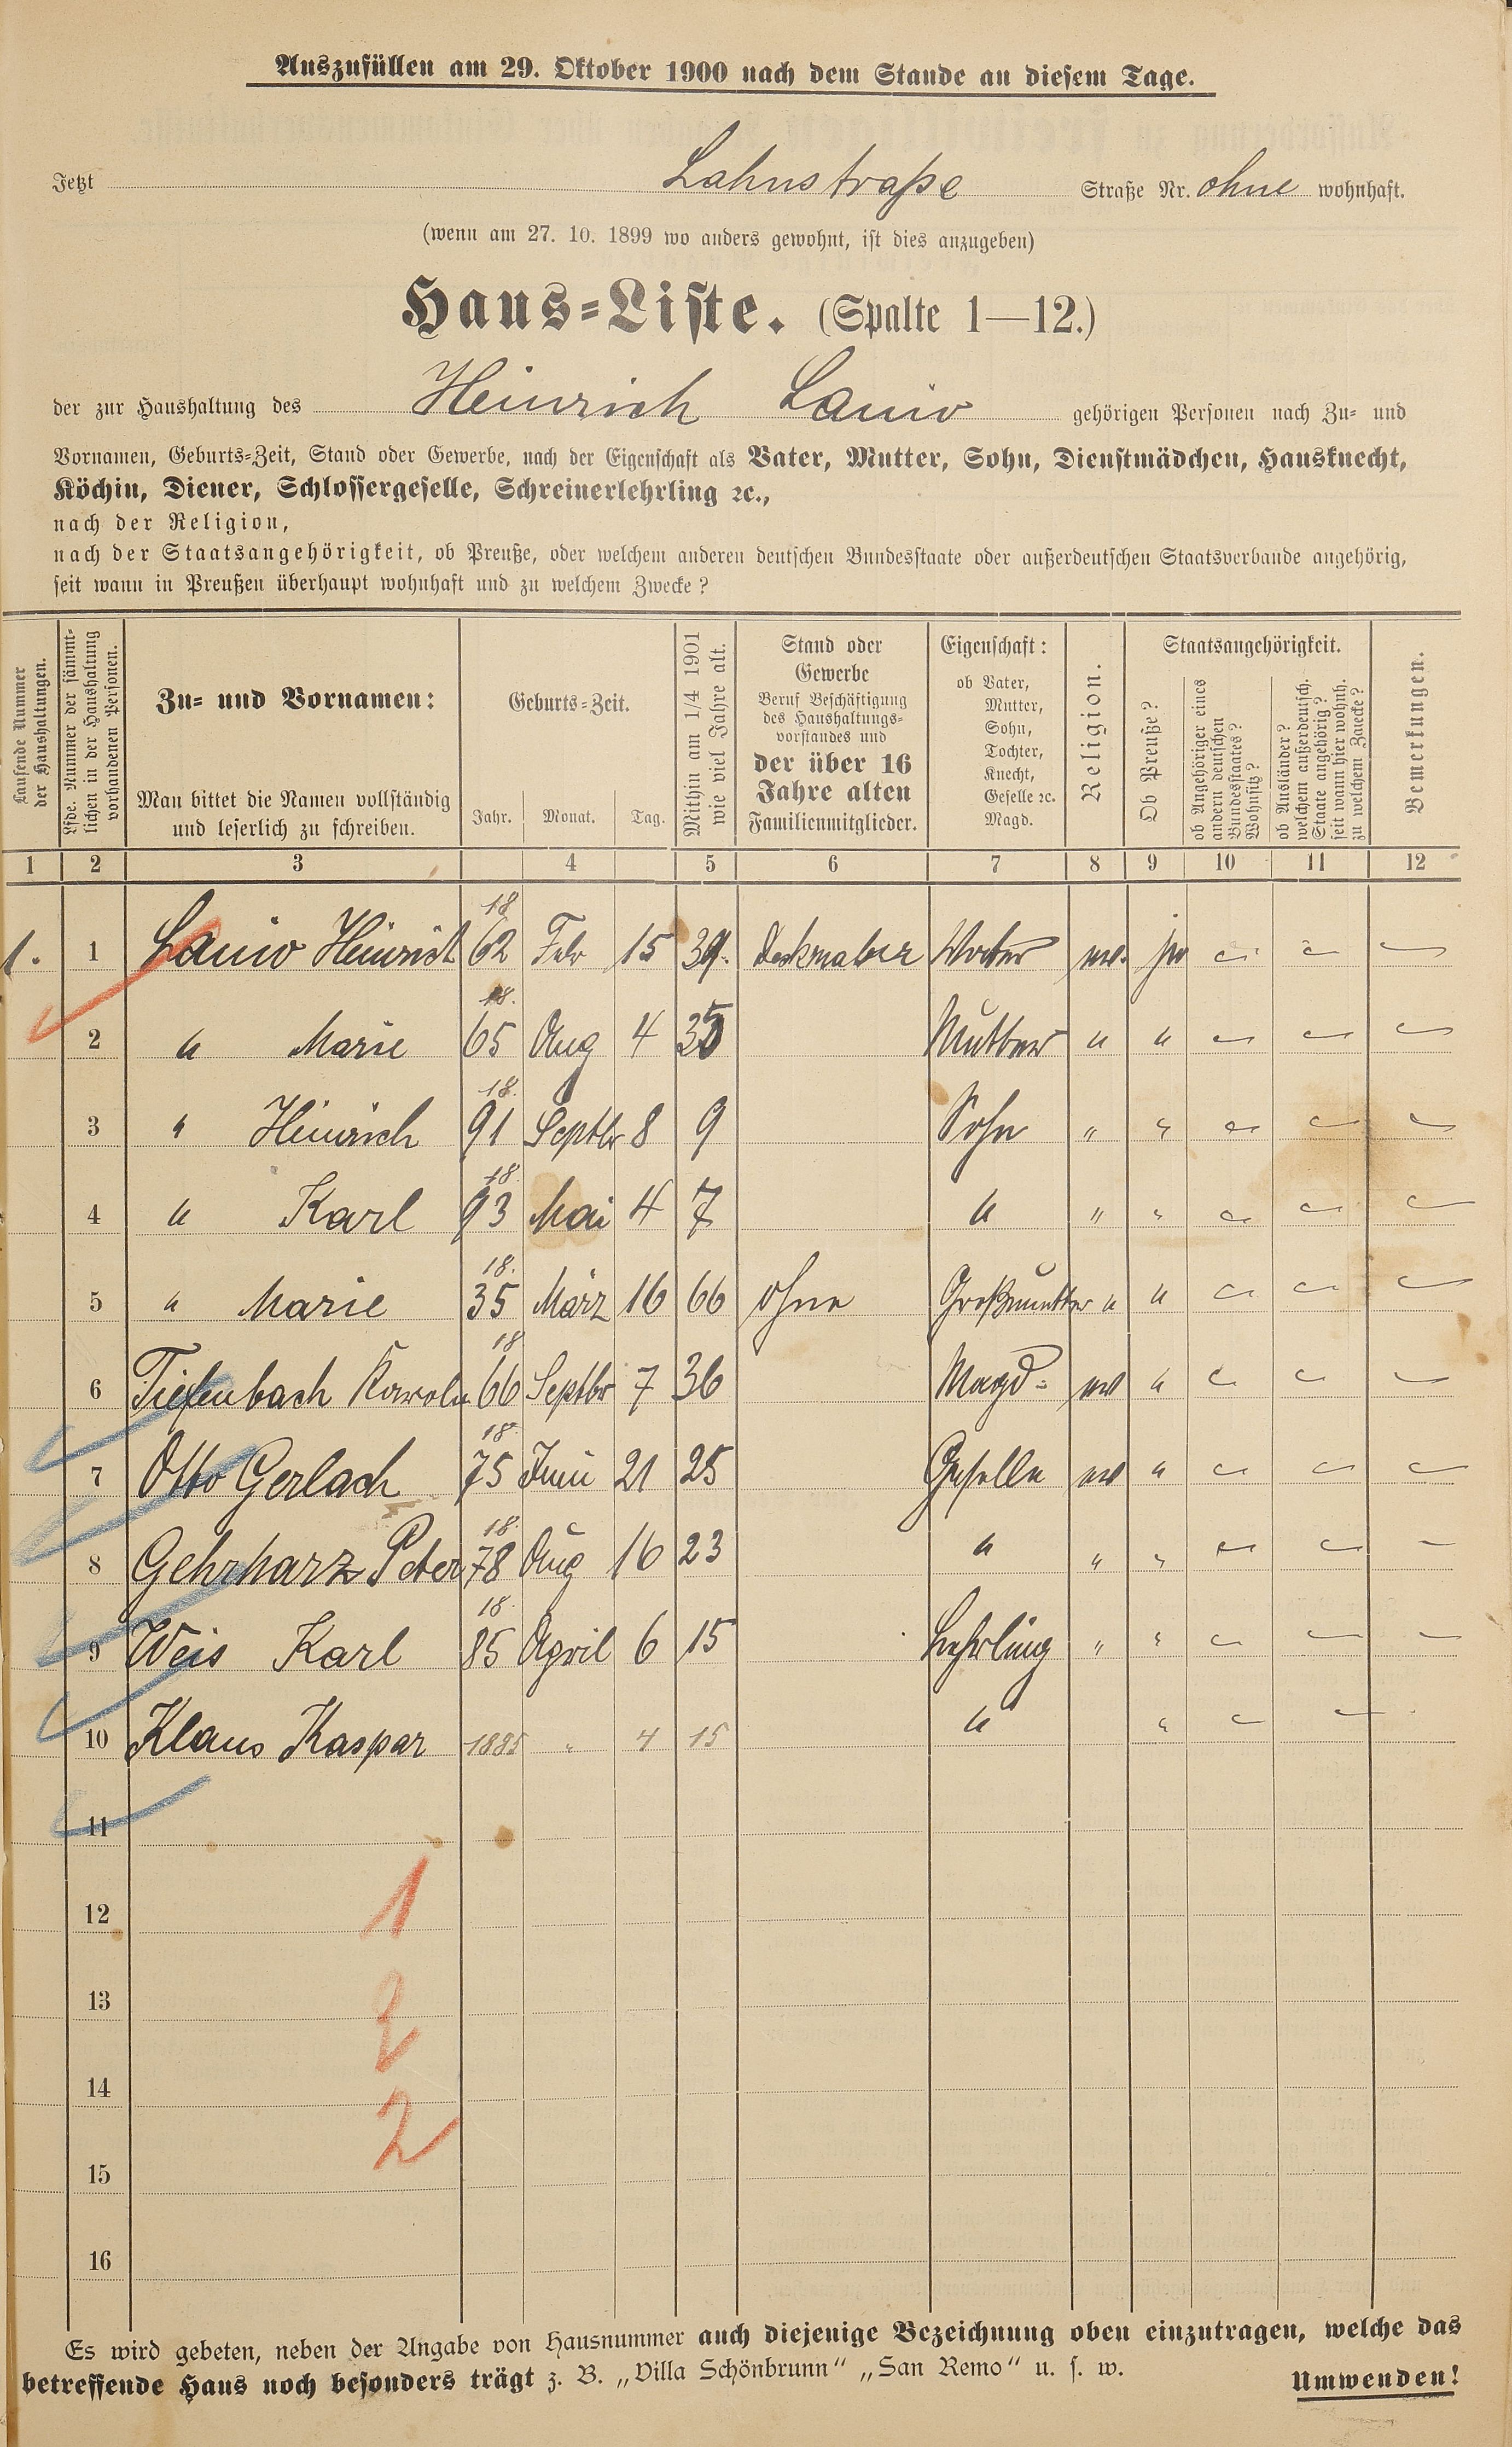 Auszufüllen am 29. Oktober 1900 nach dem Stande an diesem Tage.
Jetzt Lahnstraße Straße Nr. ohne wohnhaft.
(wenn am 27. 10. 1899 wo anders gewohnt, ist dies anzugeben)
Haus-Liste. (Spalte 1—12.)
der zur Haushaltung des Heinrich gehörigen Personen nach Zu- und
Vornamen, Geburts-Zeit, Stand oder Gewerbe, nach der Eigenschaft als Vater, Mutter, Sohn, Dienstmädchen, Hausknecht,
Köchin, Diener, Schlossergeselle, Schreinerlehrling ꝛc.,
nach der Religion,
nach der Staatsangehörigkeit, ob Preuße, oder welchem anderen deutschen Bundesstaate oder außerdeutschen Staatsverbande angehörig,
seit wann in Preußen überhaupt wohnhaft und zu welchem Zwecke?
Laufende Nummer
der Haushaltungen.
Lfde. Nummer der sämmt-
lichen in der Haushaltung
vorhandenen Personen.
Zu- und Vornamen:
Man bittet die Namen vollständig
und leserlich zu schreiben.
Geburts-Zeit.
Jahr. Monat. Tag.
Mithin am 1/4 1901
wie viel Jahre alt.
Stand oder
Gewerbe
Beruf Beschäftigung
des Haushaltungs-
vorstandes und
der über 16
Jahre alten
Familienmitglieder.
Eigenschaft:
ob Vater,
Mutter,
Sohn,
Tochter,
Knecht,
Geselle ꝛc.
Magd.
Religion.
Staatsangehörigkeit.
Ob Preuße?
ob Angehöriger eines
andern deutschen
Bundesstaates?
Wohnsitz?
ob Ausländer?
welchem außerdeutsch.
Staate angehörig?
seit wann hier wohnh.
zu welchem Zwecke?
Bemerkungen.
1 2 3 4 5 6 7 8 9 10 11 12
1. 1 Heinrich 18 62 Febr 15 39. Vater ev. ja
2 " Marie 18. 65 Aug 4 35 Mutter " "
3 " Heinrich 18. 91 Septbr 8 9 Sohn " "
4 " Karl 18. 93 Mai 4 7 " " "
5 " Marie 18. 35 März 16 66 ohne Großmutter " "
6 Tiefenbach 18 66 Septbr 7 36 Magd ev "
7 Otto Gerlach 18. 75 Juni 21 25 Geselle ev "
8 Gehrharz Peter 18. 78 Aug 16 23 " " "
9 Weis Karl 18. 85 April 6 15 Lehrling " "
10 Klaus Kaspar 1885 " 4 15 " "
11
12 1
13 2
14 2
15
16
Es wird gebeten, neben der Angabe von Hausnummer auch diejenige Bezeichnung oben einzutragen, welche das
betreffende Haus noch besonders trägt z. B. „Villa Schönbrunn“ „San Remo“ u. s. w.
Umwenden!